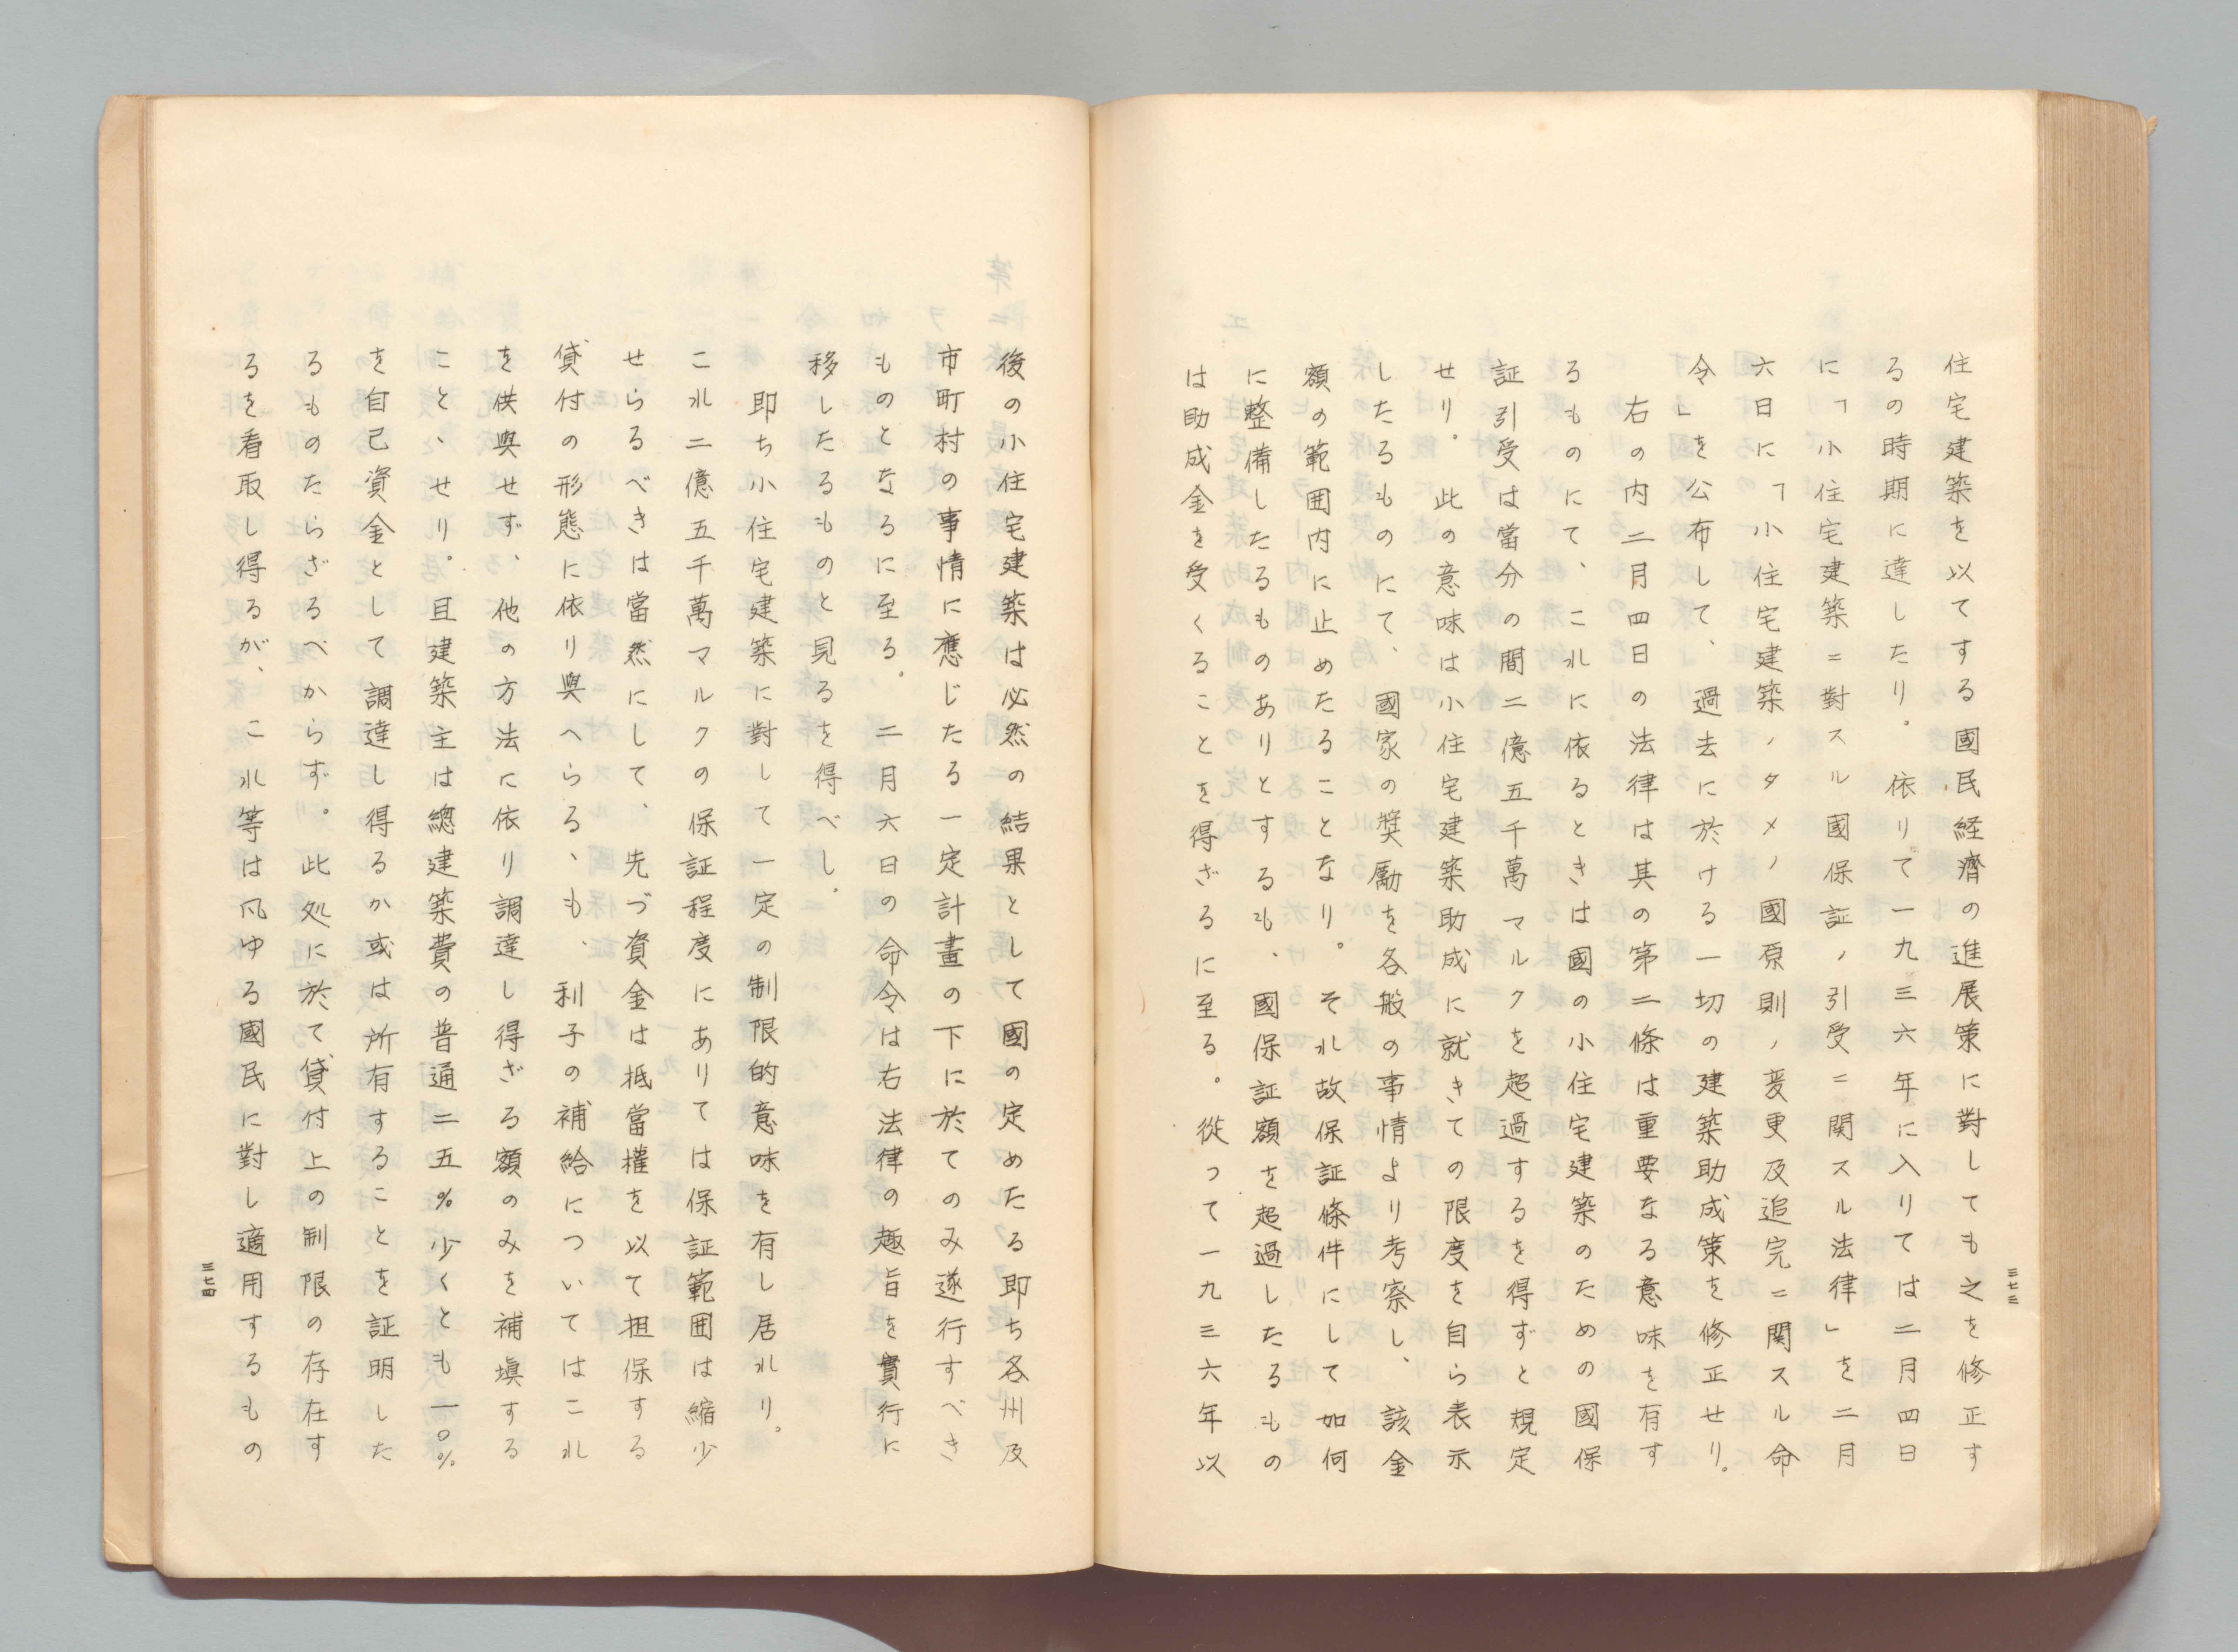 住宅建築を以てする國民経濟の進展策に對しても之を修正す
るの時期に達したり。依りて一九三六年に入りては二月四日
に「小住宅建築ニ對スル國保証ノ引受ニ関スル法律」を二月
六日に「小住宅建築ノタメノ國原則ノ変更及追完ニ関スル命
令」を公布して、過去に於ける一切の建築助成策を修正せり。
右の内二月四日の法律は其の第二條は重要なる意味を有す
るものにて、これに依るときは國の小住宅建築のための國保
証引受は當分の間二億五千萬マルクを超過するを得ずと規定
せり。此の意味は小住宅建築助成に就きての限度を自ら表示
したるものにて、國家の奨勵を各般の事情より考察し、該金
額の範囲内に止めたることなり。それ故保証條件にして如何
に整備したるものありとするも、國保証額を超過したるもの
は助成金を受くることを得ざるに至る。従って一九三六年以
三七三
後の小住宅建築は必然の結果として國の定めたる即ち各州及
市町村の事情に應じたる一定計畫の下に於てのみ遂行すべき
ものとなるに至る。二月六日の命令は右法律の趣旨を實行に
移したるものと見るを得べし。
即ち小住宅建築に對して一定の制限的意味を有し居れり。
これ二億五千萬マルクの保証程度にありては保証範囲は縮少
せらるべきは當然にして、先づ資金は抵當權を以て担保する
貸付の形態に依り與へらるゝも、利子の補給についてはこれ
を供與せず、他の方法に依り調達し得ざる額のみを補塡する
こと、せり。且建築主は總建築費の普通二五％少くとも一〇％
を自己資金として調達し得るか或は所有することを証明した
るものたらざるべからず。此処に於て貸付上の制限の存在す
るを看取し得るが、これ等は凡ゆる國民に對し適用するもの
三七四